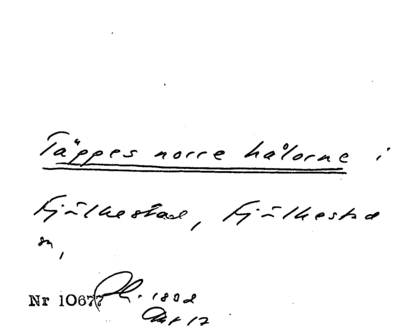 Täppes norre hålorne i
Fjälkestad, Fjälkestad
sn,
Nr 10677 Ph. 1802
Akt 12